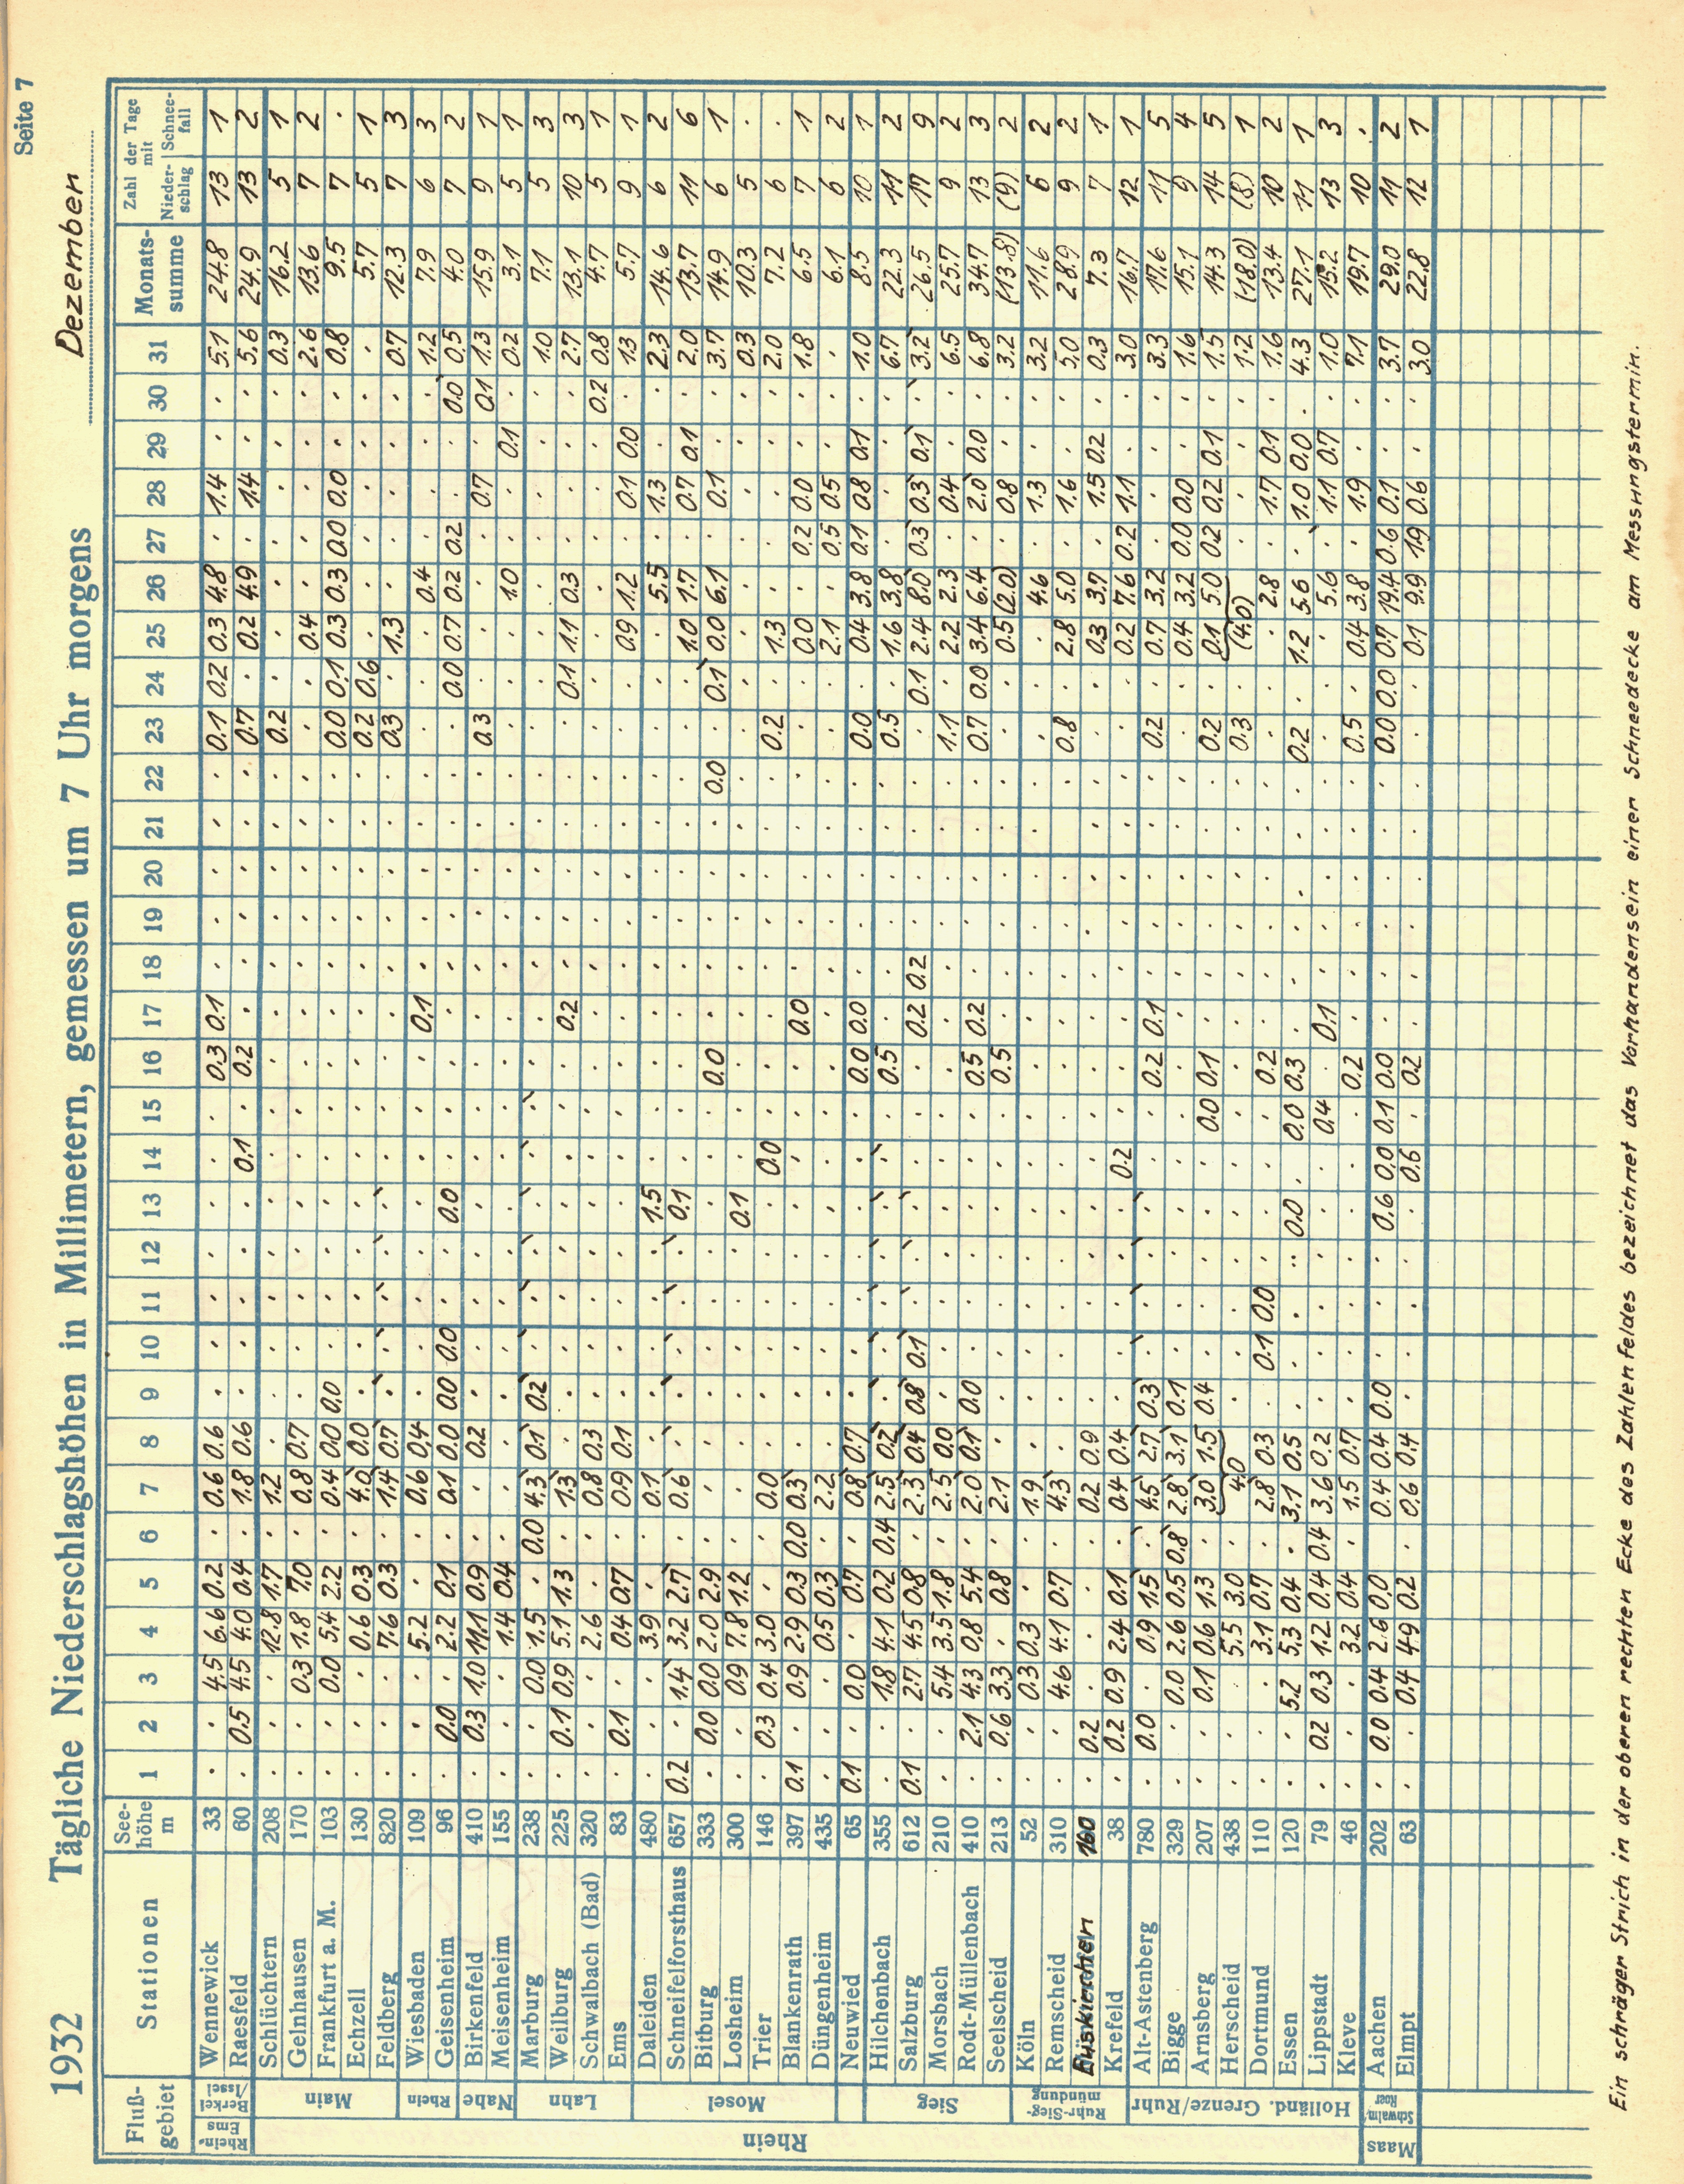 Seite 7
1932 Tägliche Niederschlagshöhen in Millimetern, gemessen um 7 Uhr morgens Dezember
Fluß-gebiet Stationen See-höhe m 1 2 3 4 5 6 7 8 9 10 11 12 13 14 15 16 17 18 19 20 21 22 23 24 25 26 27 28 29 30 31 Monats-summe Zahl der Tage mit Nieder-schlag Schnee-fall
Rhein-Ems Berkel/Issel
Wennewick 33 . . 4.5 6.6 0.2 . 0.6 0.6 . . . . . . . 0.3 0.1 . . . . . 0.1 0.2 0.3 4.8 . 1.4 . . 5.1 24.8 13 1
Raesfeld 60 . 0.5 4.5 4.0 0.4 . 1.8 0.6 . . . . . 0.1 . 0.2 . . . . . . 0.7 . 0.2 4.9 . 1.4 . . 5.6 24.9 13 2
Rhein
Main
Schlüchtern 208 . . . 12.8 1.7 . 1.2 . . . . . . . . . . . . . . . 0.2 . . . . . . . 0.3 16.2 5 1
Gelnhausen 170 . . 0.3 1.8 7.0 . 0.8 0.7 . . . . . . . . . . . . . . . . 0.4 . . . . . 2.6 13.6 7 2
Frankfurt a. M. 103 . . 0.0 5.4 2.2 . 0.4 0.0 0.0 . . . . . . . . . . . . . 0.0 0.1 0.3 0.3 0.0 0.0 . . 0.8 9.5 7 .
Echzell 130 . . . 0.6 0.3 . 4.0 0.0 . . . . . . . . . . . . . . 0.2 0.6 . . . . . . . 5.7 5 1
Feldberg 820 . . . 7.6 0.3 . 1.4 0.7 . . . . . . . . . . . . . . 0.3 . 1.3 . . . . . 0.7 12.3 7 3
Rhein
Wiesbaden 109 . . . 5.2 . . 0.6 0.4 . . . . . . . . 0.1 . . . . . . . . 0.4 . . . . 1.2 7.9 6 3
Geisenheim 96 . 0.0 . 2.2 0.1 . 0.1 0.0 0.0 0.0 . . 0.0 . . . . . . . . . . 0.0 0.7 0.2 0.2 . . 0.0 0.5 4.0 7 2
Nahe
Birkenfeld 410 . 0.3 1.0 11.1 0.9 . . 0.2 . . . . . . . . . . . . . . 0.3 . . . . 0.7 . 0.1 1.3 15.9 9 1
Meisenheim 155 . . . 1.4 0.4 . . . . . . . . . . . . . . . . . . . . 1.0 . . 0.1 . 0.2 3.1 5 1
Lahn
Marburg 238 . . 0.0 1.5 . 0.0 4.3 0.1 0.2 . . . . . . . . . . . . . . . . . . . . . 1.0 7.1 5 3
Weilburg 225 . 0.1 0.9 5.1 1.3 . 1.3 . . . . . . . . . 0.2 . . . . . . 0.1 1.1 0.3 . . . . 2.7 13.1 10 3
Schwalbach (Bad) 320 . . . 2.6 . . 0.8 0.3 . . . . . . . . . . . . . . . . . . . . . 0.2 0.8 4.7 5 1
Ems 83 . 0.1 . 0.4 0.7 . 0.9 0.1 . . . . . . . . . . . . . . . . 0.9 1.2 . 0.1 0.0 . 1.3 5.7 9 1
Mosel
Daleiden 480 . . . 3.9 . . 0.1 . . . . . 1.5 . . . . . . . . . . . . 5.5 . 1.3 . . 2.3 14.6 6 2
Schneifelforsthaus 657 0.2 . 1.4 3.2 2.7 . 0.6 . . . . . 0.1 . . . . . . . . . . . 1.0 1.7 . 0.7 0.1 . 2.0 13.7 11 6
Bitburg 333 . 0.0 0.0 2.0 2.9 . . . . . . . . . . 0.0 . . . . . 0.0 . 0.1 0.0 6.1 . 0.1 . . 3.7 14.9 6 1
Losheim 300 . . 0.9 7.8 1.2 . . . . . . . 0.1 . . . . . . . . . . . . . . . . . 0.3 10.3 5 .
Trier 146 . 0.3 0.4 3.0 . . 0.0 . . . . . . 0.0 . . . . . . . . 0.2 . 1.3 . . . . . 2.0 7.2 6 .
Blankenrath 397 0.1 . 0.9 2.9 0.3 0.0 0.3 . . . . . . . . . 0.0 . . . . . . . 0.0 . 0.2 0.0 . . 1.8 6.5 7 1
Düngenheim 435 . . . 0.5 0.3 . 2.2 . . . . . . . . . . . . . . . . . 2.1 . 0.5 0.5 . . . 6.1 6 2
Neuwied 65 0.1 . 0.0 . 0.7 . 0.8 0.7 . . . . . . . 0.0 0.0 . . . . . 0.0 . 0.4 3.8 0.1 0.8 0.1 . 1.0 8.5 10 1
Sieg
Hilchenbach 355 . . 1.8 4.1 0.2 0.4 2.5 0.2 . . . . . . . 0.5 . . . . . . 0.5 . 1.6 3.8 . . . . 6.7 22.3 11 2
Salzburg 612 0.1 . 2.7 4.5 0.8 . 2.3 0.4 0.8 0.1 . . . . . . 0.2 0.2 . . . . . 0.1 2.4 8.0 0.3 0.3 0.1 . 3.2 26.5 17 9
Morsbach 210 . . 5.4 3.5 1.8 . 2.5 0.0 . . . . . . . . . . . . . . 1.1 . 2.2 2.3 . 0.4 . . 6.5 25.7 9 2
Rodt-Müllenbach 410 . 2.1 4.3 0.8 5.4 . 2.0 0.1 0.0 . . . . . . 0.5 0.2 . . . . . 0.7 0.0 3.4 6.4 . 2.0 0.0 . 6.8 34.7 13 3
Seelscheid 213 . 0.6 3.3 . 0.8 . 2.1 . . . . . . . . 0.5 . . . . . . . . 0.5 (2.0) . 0.8 . . 3.2 (13.8) (9) 2
Ruhr-Sieg-mündung
Köln 52 . . 0.3 0.3 . . 1.9 . . . . . . . . . . . . . . . . . . 4.6 . 1.3 . . 3.2 11.6 6 2
Remscheid 310 . . 4.6 4.1 0.7 . 4.3 . . . . . . . . . . . . . . . 0.8 . 2.8 5.0 . 1.6 . . 5.0 28.9 9 2
Euskirchen 160 . 0.2 . . . . 0.2 0.9 . . . . . . . . . . . . . . . . 0.3 3.7 . 1.5 0.2 . 0.3 7.3 7 1
Krefeld 38 . 0.2 0.9 2.4 0.1 . 0.4 0.4 . . . . . 0.2 . . . . . . . . . . 0.2 7.6 0.2 1.1 . . 3.0 16.7 12 1
Holländ. Grenze/Ruhr
Alt-Astenberg 780 . 0.0 . 0.9 1.5 . 4.5 2.7 0.3 . . . . . . 0.2 0.1 . . . . . 0.2 . 0.7 3.2 . . . . 3.3 17.6 11 5
Bigge 329 . . 0.0 2.6 0.5 0.8 2.8 3.1 0.1 . . . . . . . . . . . . . . . 0.4 3.2 0.0 0.0 . . 1.6 15.1 9 4
Arnsberg 207 . . 0.1 0.6 1.3 . 3.0 1.5 0.4 . . . . . 0.0 0.1 . . . . . . 0.2 . 0.1 5.0 0.2 0.2 0.1 . 1.5 14.3 14 5
Herscheid 438 . . . 5.5 3.0 . 4.0 . . . . . . . . . . . . . . 0.3 . (4.0) . . . . 1.2 (18.0) (8) 1
Dortmund 110 . . . 3.1 0.7 . 2.8 0.3 . 0.1 0.0 . . . . 0.2 . . . . . . . . . 2.8 . 1.7 0.1 . 1.6 13.4 10 2
Essen 120 . . 5.2 5.3 0.4 . 3.1 0.5 . . . . 0.0 . 0.0 0.3 . . . . . . 0.2 . 1.2 5.6 . 1.0 0.0 . 4.3 27.1 11 1
Lippstadt 79 . 0.2 0.3 1.2 0.4 0.4 3.6 0.2 . . . . . . 0.4 . 0.1 . . . . . . . . 5.6 . 1.1 0.7 . 1.0 15.2 13 3
Kleve 46 . . . 3.2 0.4 . 1.5 0.7 . . . . . . . 0.2 . . . . . . 0.5 . 0.4 3.8 . 1.9 . . 7.1 19.7 10 .
Maas Schwalm/Roer
Aachen 202 . 0.0 0.4 2.6 0.0 . 0.4 0.4 0.0 . . . 0.6 0.0 0.1 0.0 . . . . . . 0.0 0.0 0.7 19.4 0.6 0.1 . . 3.7 29.0 11 2
Elmpt 63 . . 0.4 4.9 0.2 . 0.6 0.4 . . . . . 0.6 . 0.2 . . . . . . . . 0.1 9.9 1.9 0.6 . . 3.0 22.8 12 1
Ein schräger Strich in der oberen rechten Ecke des Zahlenfeldes bezeichnet das Vorhandensein einer Schneedecke am Messungstermin.